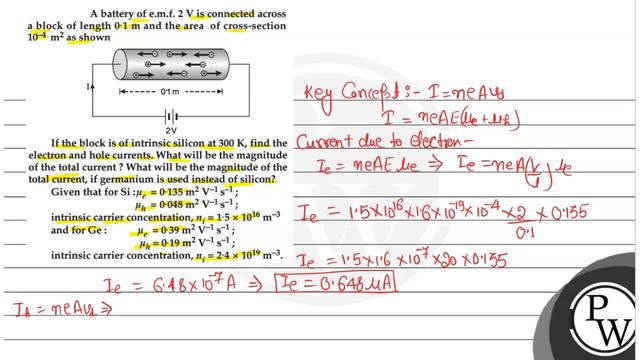 A battery of e.m.f. 2 V is connected across
a block of length 0·1 m and the area of cross-section
10⁻⁴ m² as shown
I
0·1 m
2 V
If the block is of intrinsic silicon at 300 K, find the
electron and hole currents. What will be the magnitude
of the total current ? What will be the magnitude of the
total current, if germanium is used instead of silicon?
Given that for Si : μₑ = 0·135 m² V⁻¹ s⁻¹ ;
μₕ = 0·048 m² V⁻¹ s⁻¹ ;
intrinsic carrier concentration, nᵢ = 1·5 × 10¹⁶ m⁻³
and for Ge : μₑ = 0·39 m² V⁻¹ s⁻¹ ;
μₕ = 0·19 m² V⁻¹ s⁻¹ ;
intrinsic carrier concentration, nᵢ = 2·4 × 10¹⁹ m⁻³.
Key Concept :- I = neAvd
I = neAE(μe + μh)
Current due to electron -
Ie = neAE μe ⇒ Ie = neA(V/l) μe
Ie = 1.5×10¹⁶×1.6×10⁻¹⁹×10⁻⁴×2/0.1×0.135
Ie = 1.5×1.6×10⁻⁷×20×0.135
Ie = 6.48×10⁻⁷A ⇒ Ie = 0.648μA
Ih = neAvd ⇒
PW